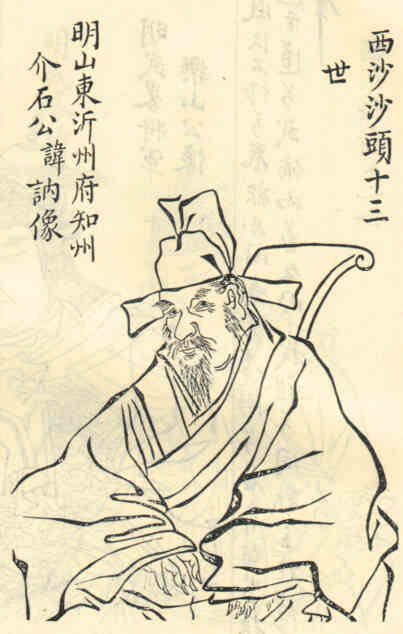 西沙沙頭十三
世
明山東沂州府知州
介石公諱訥像